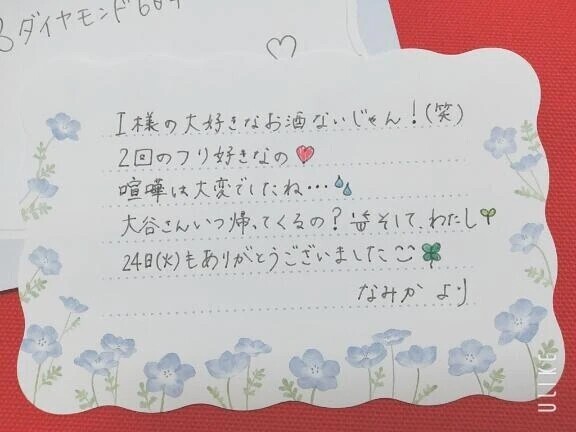 ダイヤモンド60分
I様の大好きなお酒ないじゃん！(笑)
2回のフリ好きなの♥
喧嘩は大変でしたね…💧
大谷さんいつ帰ってくるの？そして、わたし🌱
24日(火)もありがとうございました🍀
なみか より
ULIKE